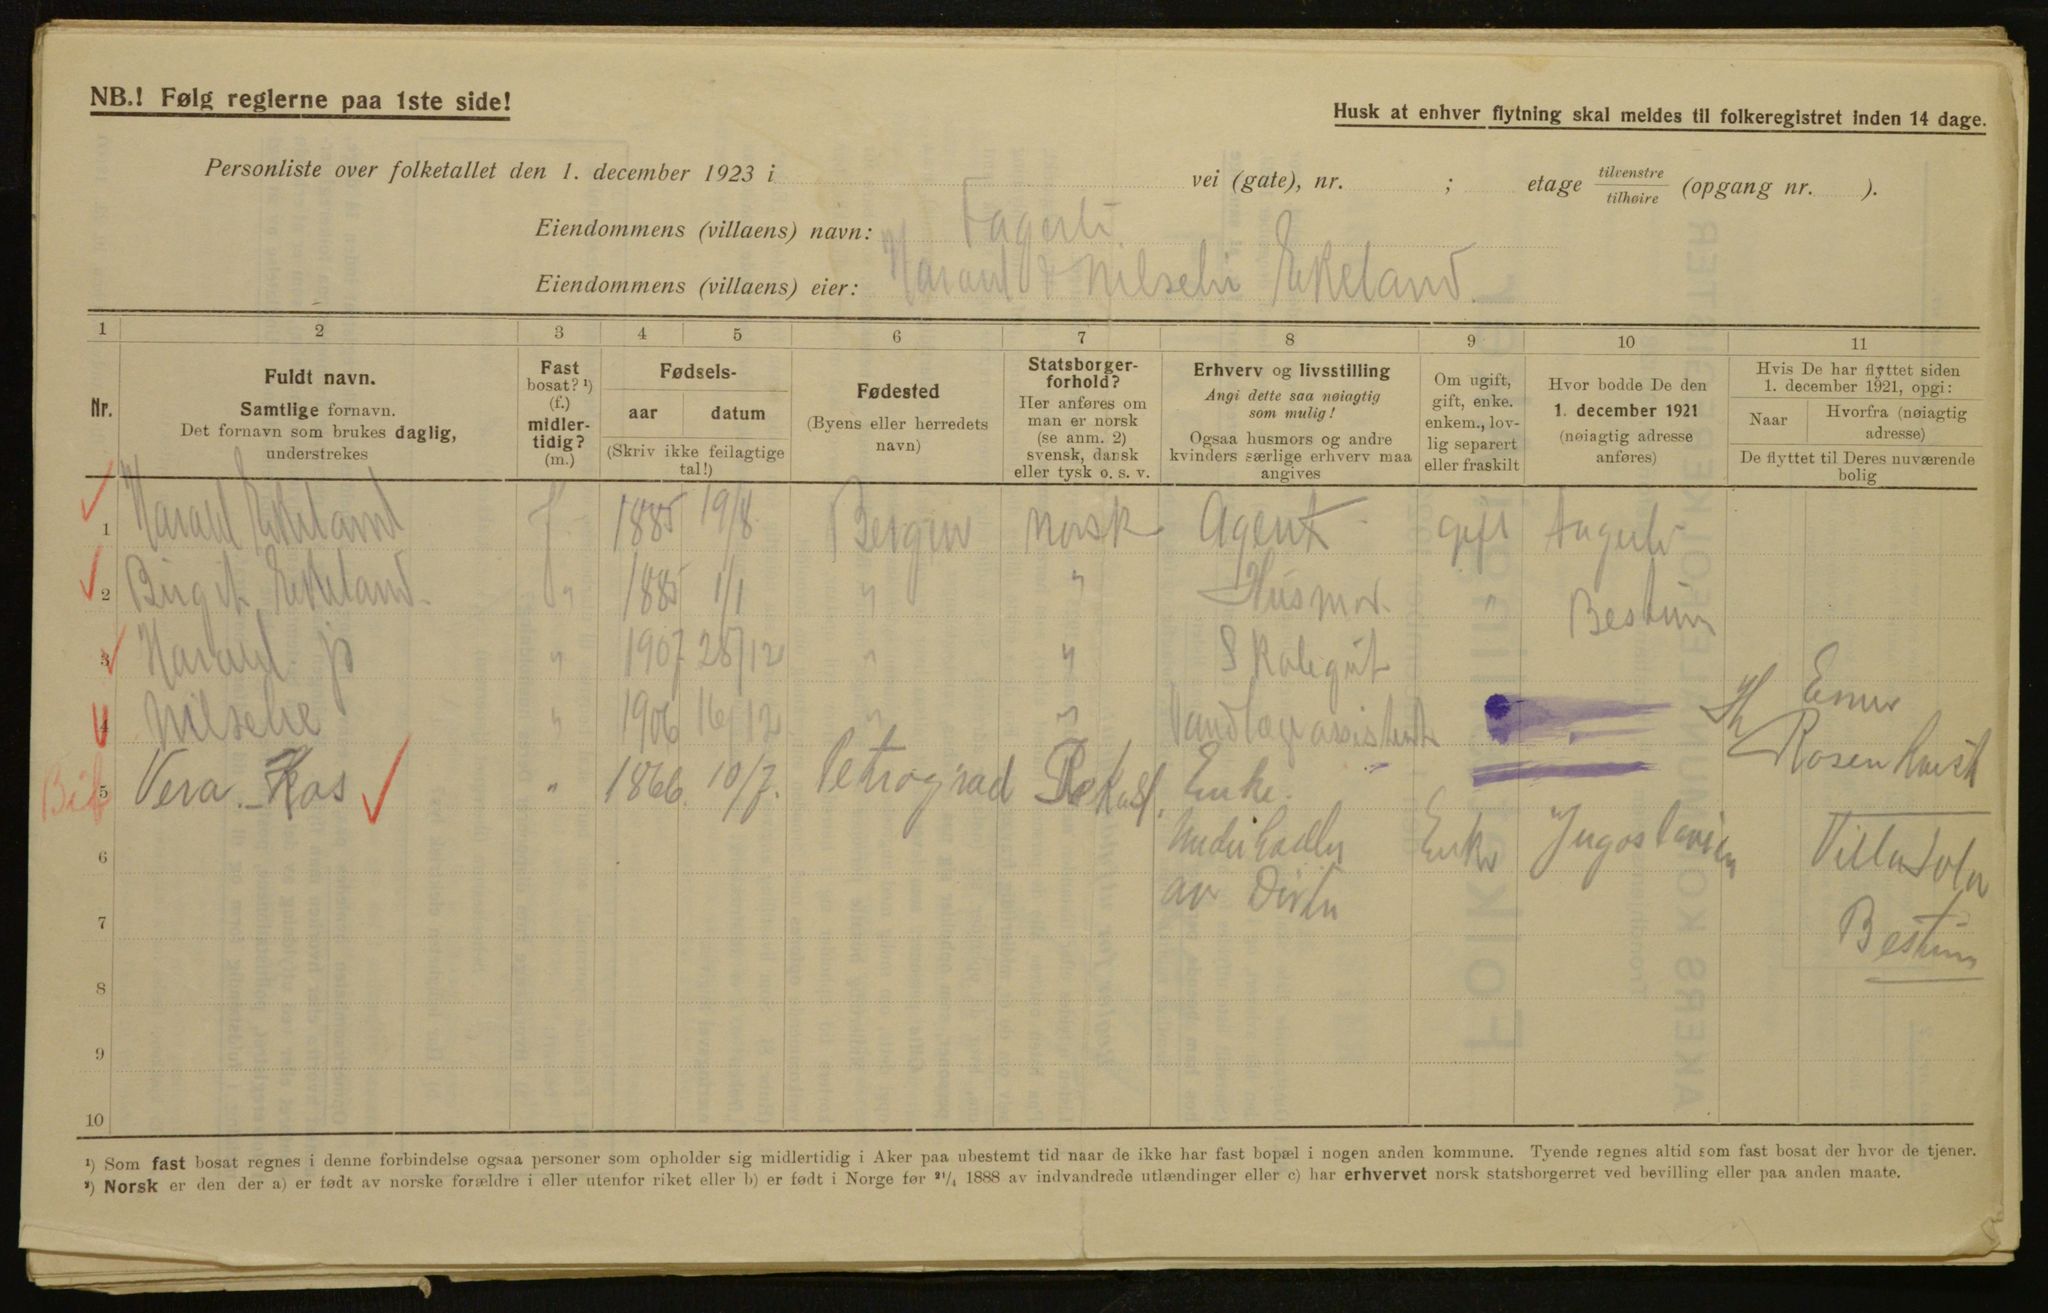 NB.! Følg reglerne paa 1ste side!
Husk at enhver flytning skal meldes til folkeregistret inden 14 dage.
Personliste over folketallet den 1. december 1923 i vei (gate), nr. ; etage tilvenstre/tilhøire (opgang nr. ).
Eiendommens (villaens) navn: Fagerli
Eiendommens (villaens) eier: Harald & Nilselie Ekeland.
1 2 3 4 5 6 7 8 9 10 11
Nr.
Fuldt navn.
Samtlige fornavn.
Det fornavn som brukes daglig,
understrekes
Fast
bosat? ¹)
(f.)
midler-
tidig?
(m.)
Fødsels-
aar datum
(Skriv ikke feilagtige
tal!)
Fødested
(Byens eller herredets
navn)
Statsborger-
forhold?
Her anføres om
man er norsk
(se anm. 2)
svensk, dansk
eller tysk o. s. v.
Erhverv og livsstilling
Angi dette saa nøiagtig
som mulig!
Ogsaa husmors og andre
kvinders særlige erhverv maa
angives
Om ugift,
gift, enke.
enkem., lov-
lig separert
eller fraskilt
Hvor bodde De den
1. december 1921
(nøiagtig adresse
anføres)
Hvis De har flyttet siden
1. december 1921, opgi:
Naar Hvorfra (nøiagtig
adresse)
De flyttet til Deres nuværende
bolig
1 Harald Ekeland f 1885 19/8 Bergen norsk Agent gift Fagerli
2 Birgit Ekeland. " 1885 1/1 " " Husmor. " Bestum
3 Harald jr " 1907 28/12 " " Skolegut
4 Nilselie " 1906 16/12 " " Tandlægeassistent
5 Vera Kos " 1866 10/7. Petrograd Enke.
Enke Jugoslavien
av
Rosenkvist
Villa Sole
Bestum
6
7
8
9
10
¹) Som fast bosat regnes i denne forbindelse ogsaa personer som opholder sig midlertidig i Aker paa ubestemt tid naar de ikke har fast bopæl i nogen anden kommune. Tyende regnes altid som fast bosat der hvor de tjener.
²) Norsk er den der a) er født av norske forældre i eller utenfor riket eller b) er født i Norge før ²¹/₄ 1888 av indvandrede utlændinger eller c) har erhvervet norsk statsborgerret ved bevilling eller paa anden maate.